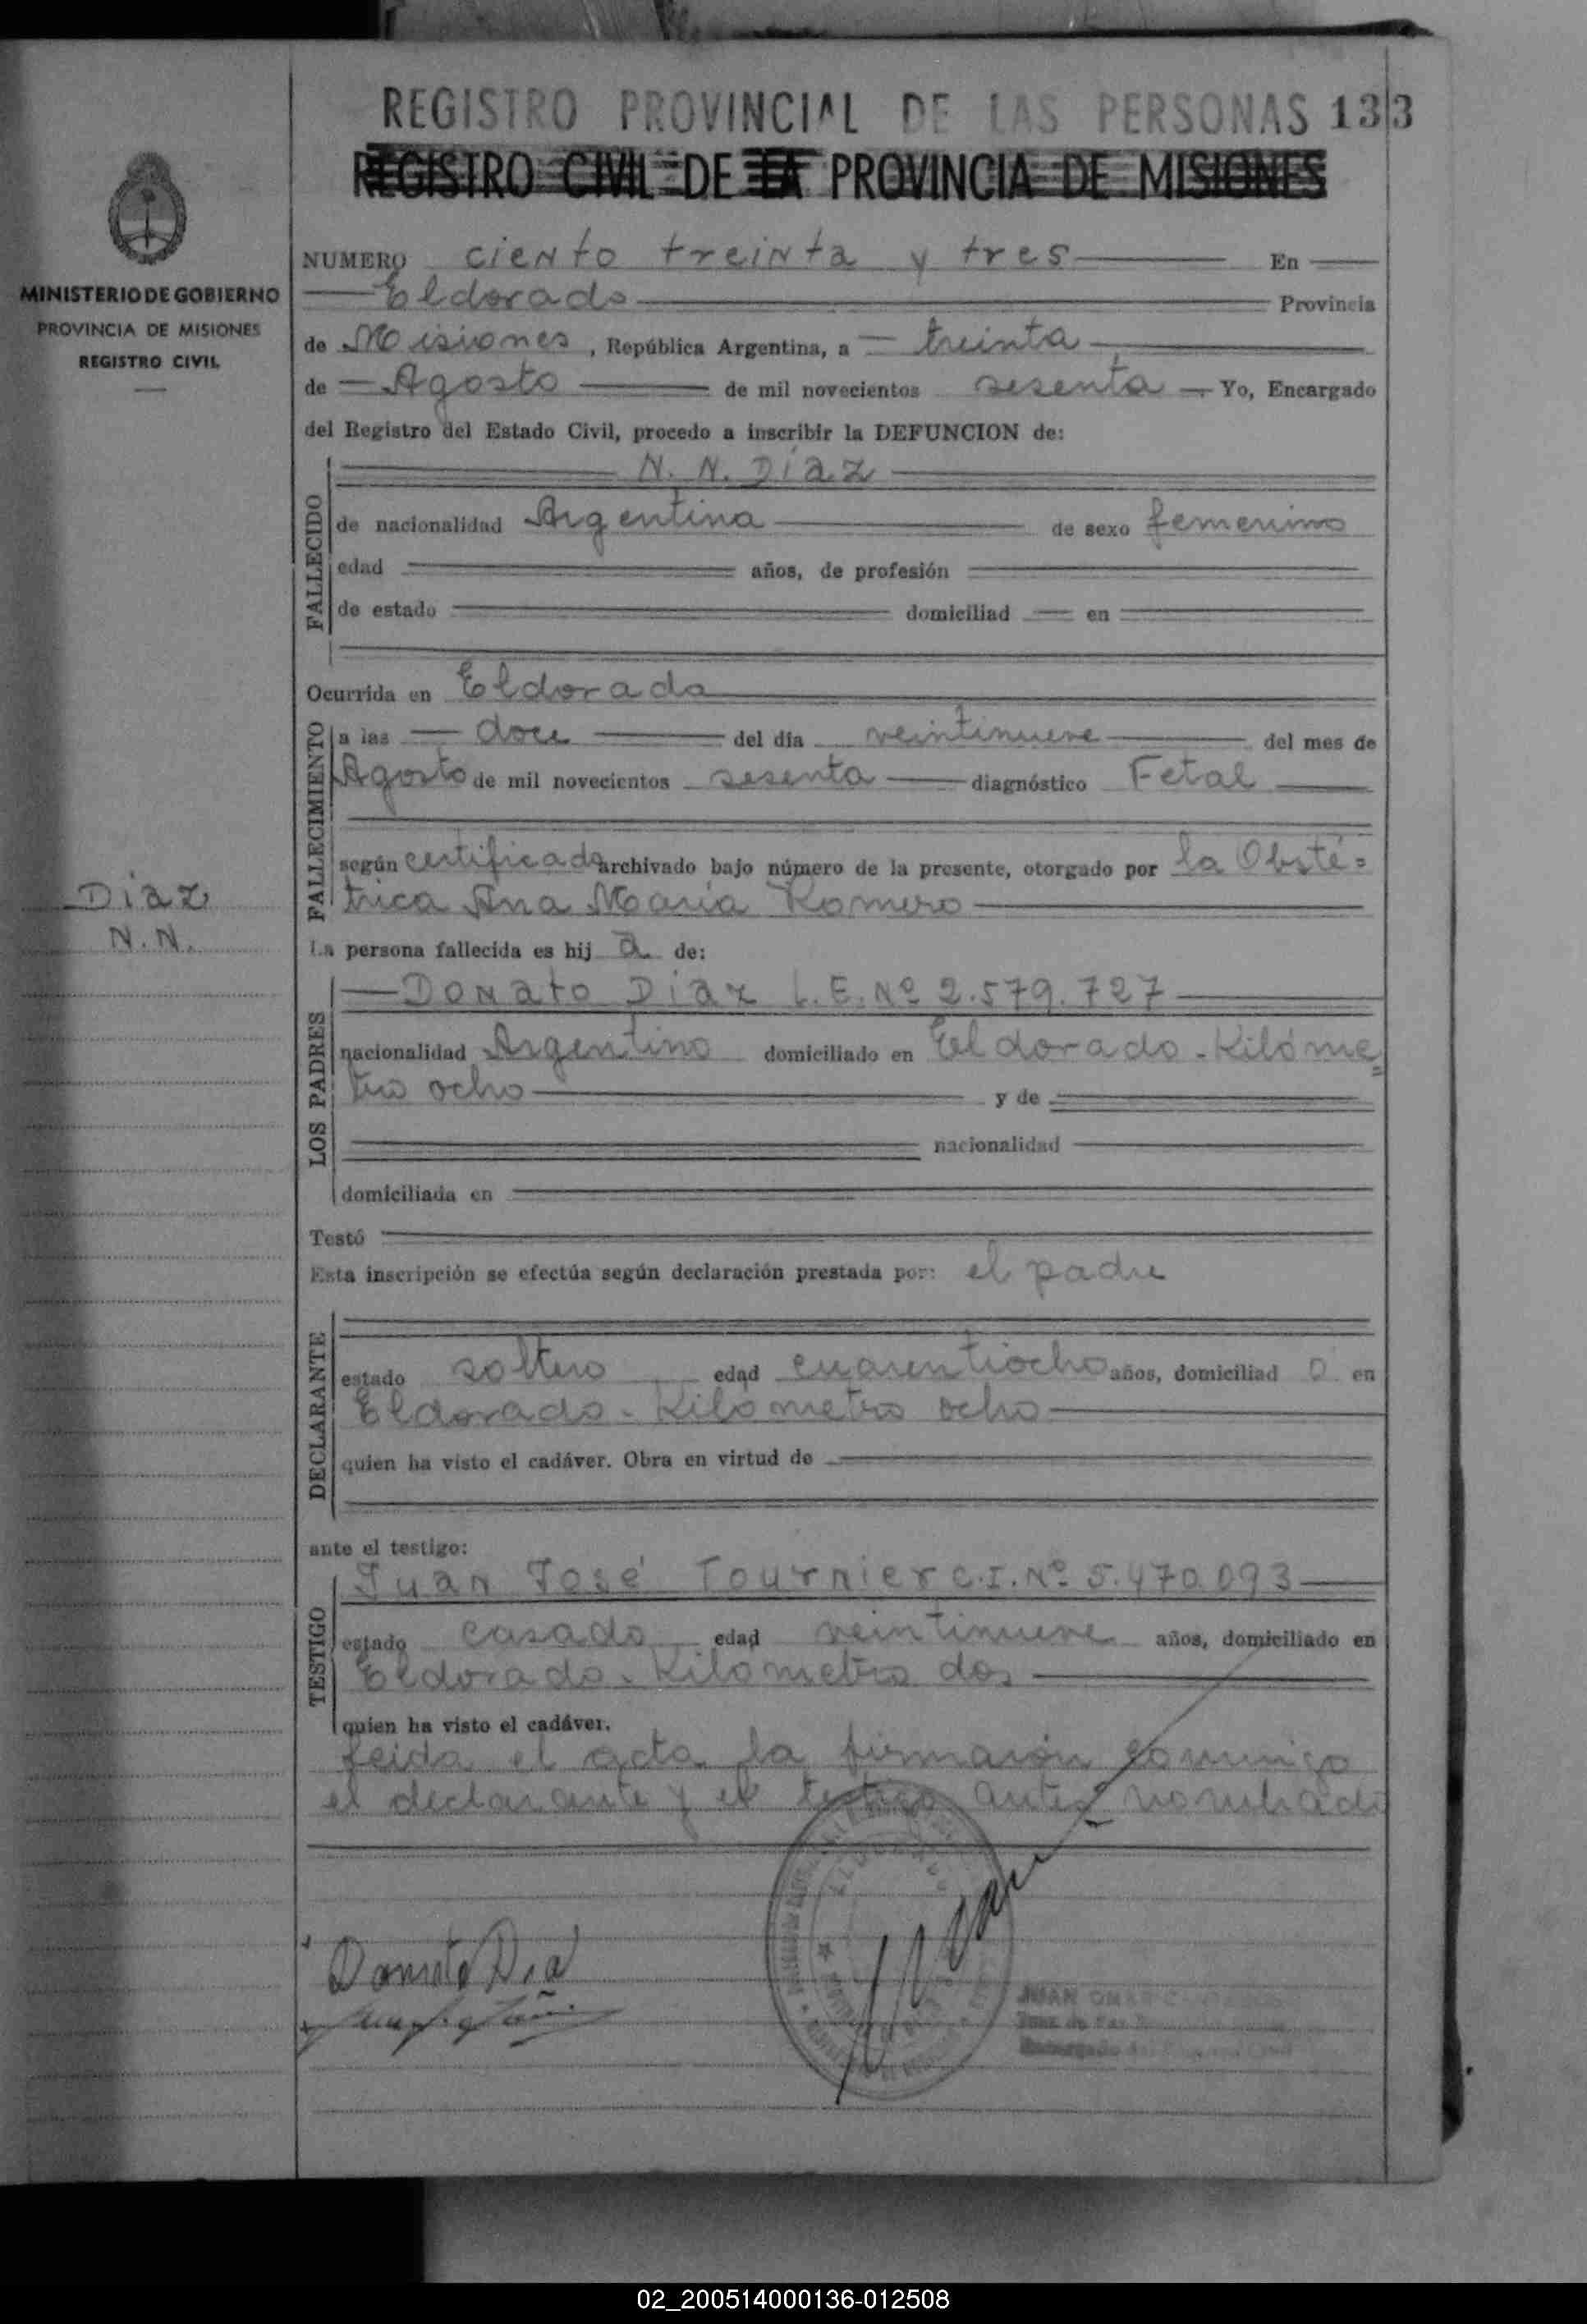 REGISTRO PROVINCIAL DE LAS PERSONAS 133
REGISTRO CIVIL DE LA PROVINCIA DE MISIONES
MINISTERIO DE GOBIERNO
PROVINCIA DE MISIONES
REGISTRO CIVIL
Diaz
N.N.
NUMERO ciento treinta y tres En
Eldorado Provincia
de Misiones, República Argentina, a treinta
de Agosto de mil novecientos sesenta Yo, Encargado
del Registro del Estado Civil, procedo a inscribir la DEFUNCION de:
N. N. Díaz
FALLECIDO
de nacionalidad Argentina de sexo femenino
edad años, de profesión
de estado domiciliad en
Ocurrida en Eldorado
FALLECIMIENTO
a las doce del día veintinueve del mes de
Agosto de mil novecientos sesenta diagnóstico Fetal
según certificado archivado bajo número de la presente, otorgado por la Obsté=
trica Ana María Romero
La persona fallecida es hij a de:
LOS PADRES
Donato Díaz L.E.Nº 2.579.727
nacionalidad Argentino domiciliado en Eldorado - Kilóme=
tro ocho y de
nacionalidad
domiciliada en
Testó
Esta inscripción se efectúa según declaración prestada por: el padre
DECLARANTE
estado soltero edad cuarentiocho años, domiciliad o en
Eldorado - Kilometro ocho
quien ha visto el cadáver. Obra en virtud de
ante el testigo:
TESTIGO
Juan José Tournier C.I.Nº 5.470.093
estado casado edad veintinueve años, domiciliado en
Eldorado - Kilometro dos
quien ha visto el cadáver.
Leida el acta la firmaron conmigo
el declarante y el testigo antes nombrado
Donato Dia
JUAN OMAR
02_200514000136-012508